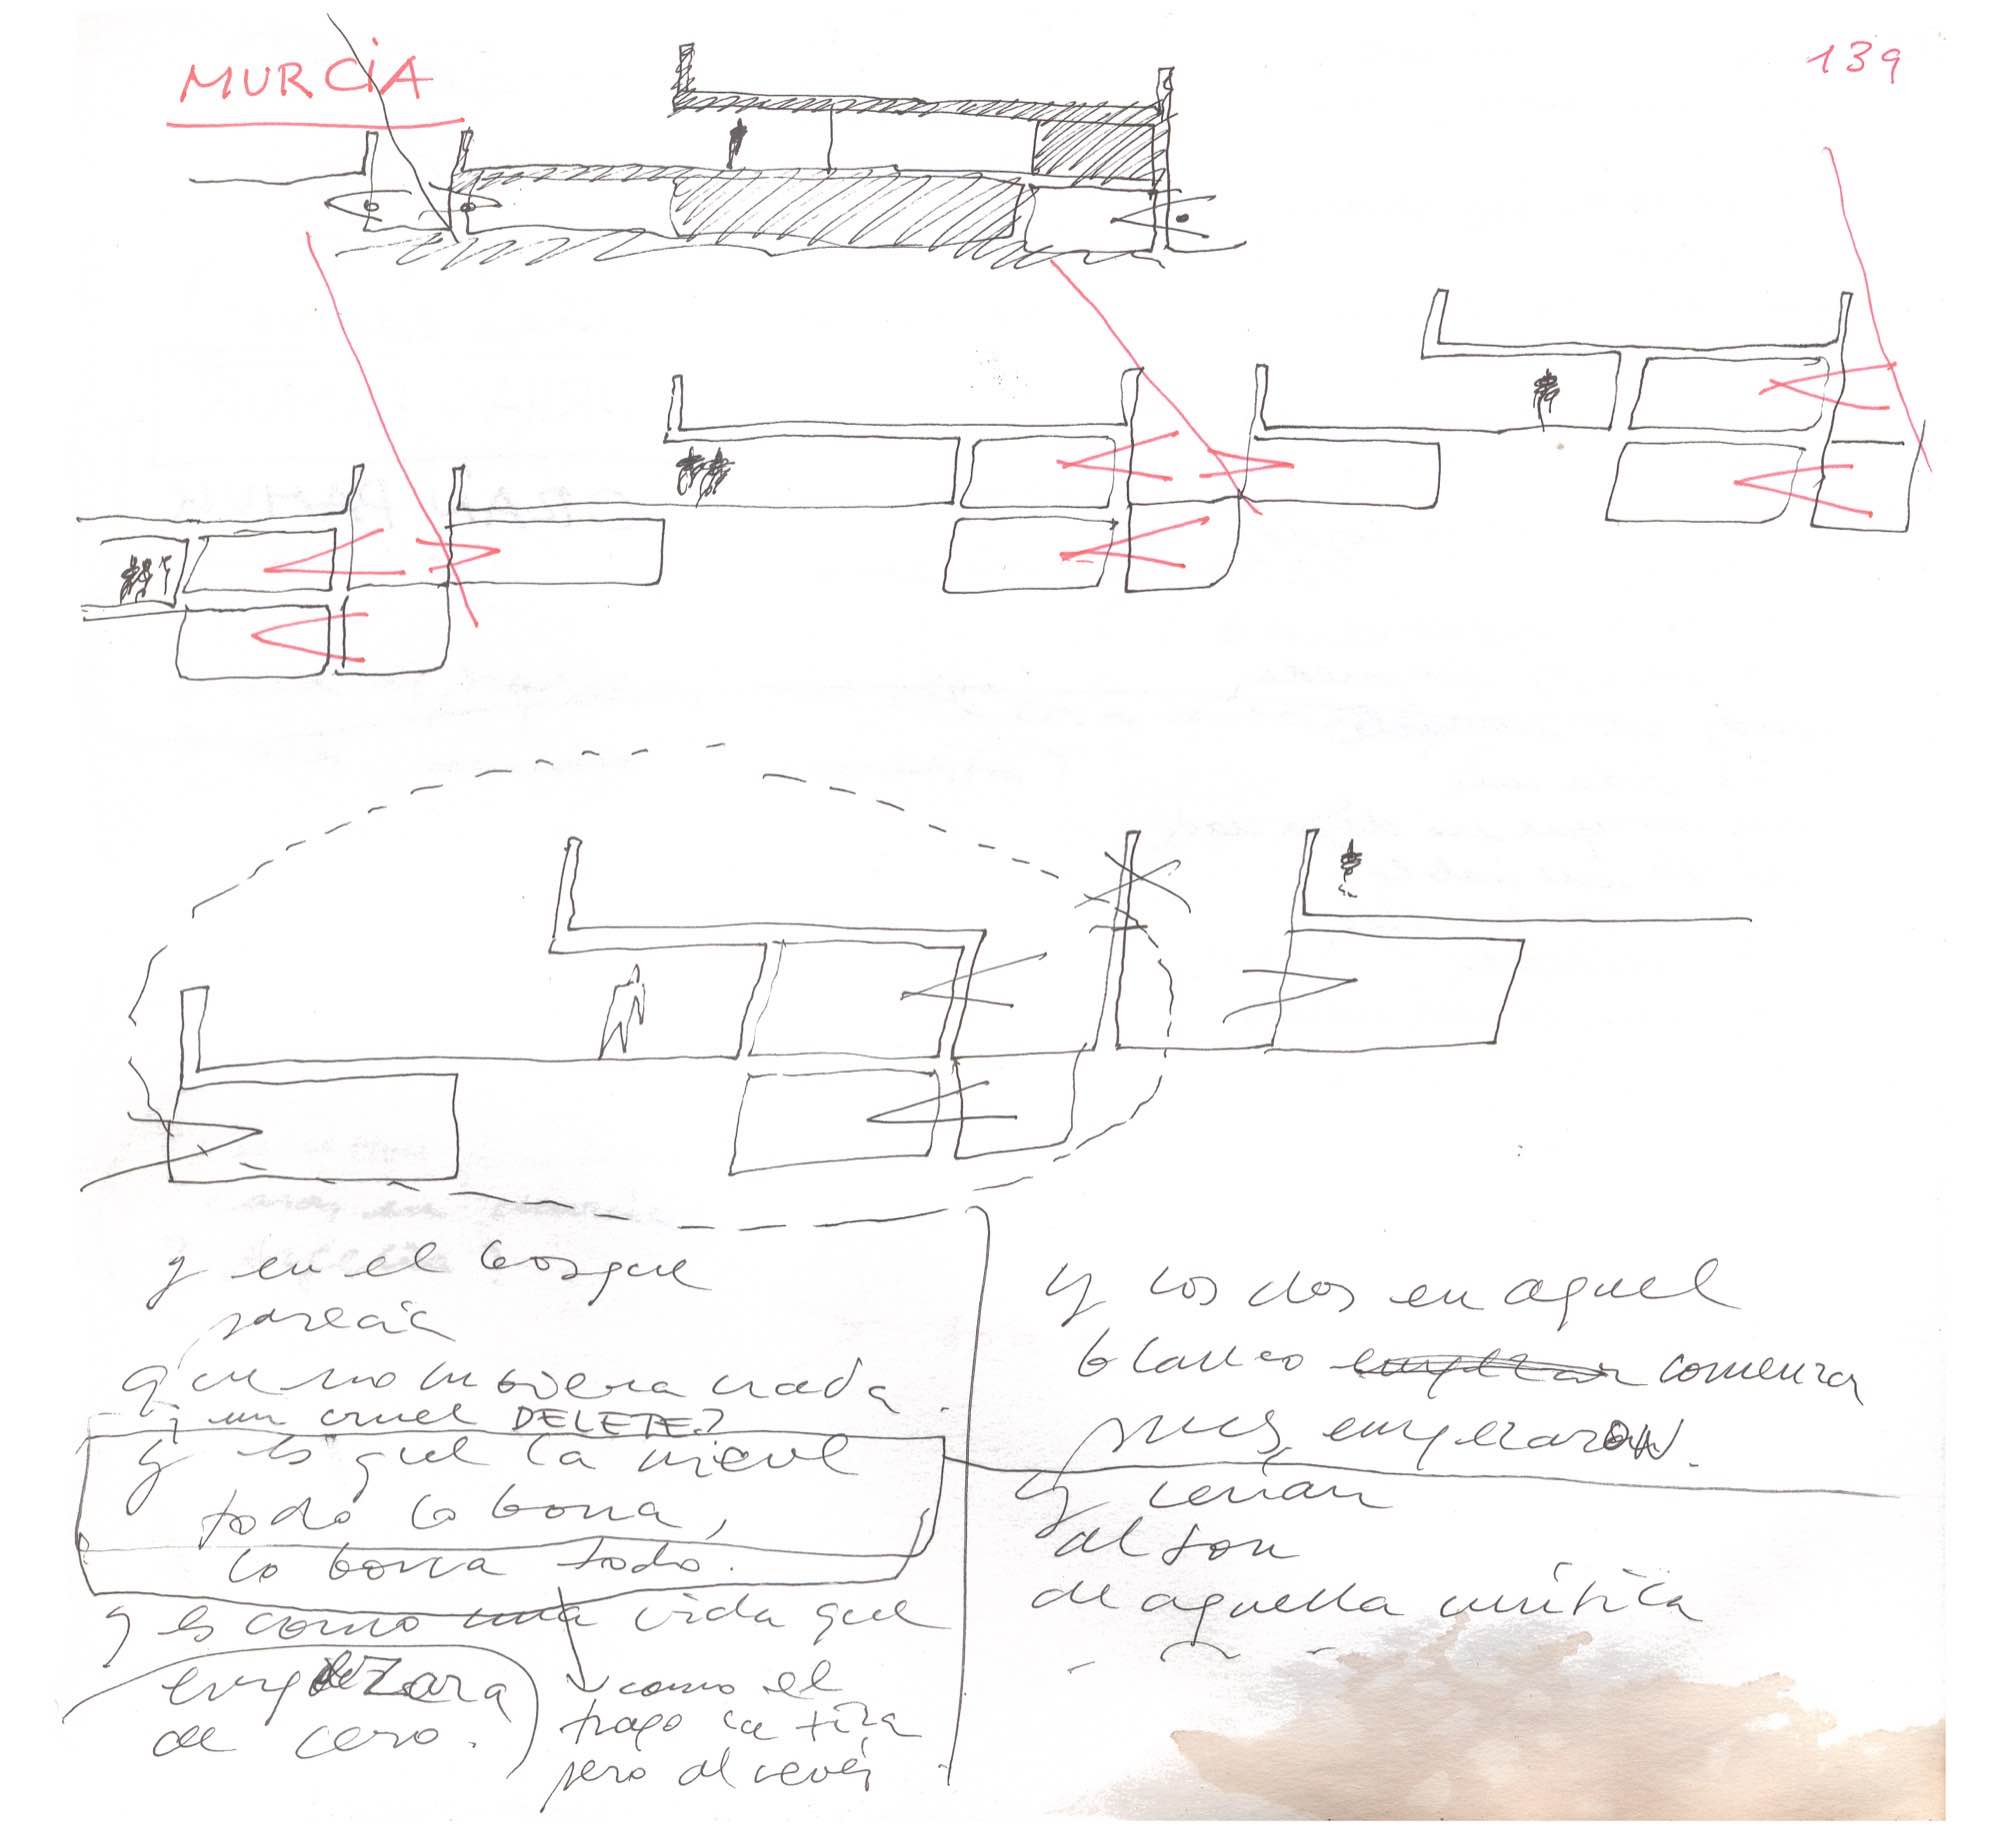 MURCIA
139
y en el bosque
parecía
que no hubiera nada.
y un cruel DELETE?
y es que la nieve
todo lo borra,
lo borra todo.
y es como una vida que
empezara
de cero.
como el
trapo la tiza
pero al revés
y los dos en aquel
blanco comenza
pues, empezaron.
y
al son
de aquella